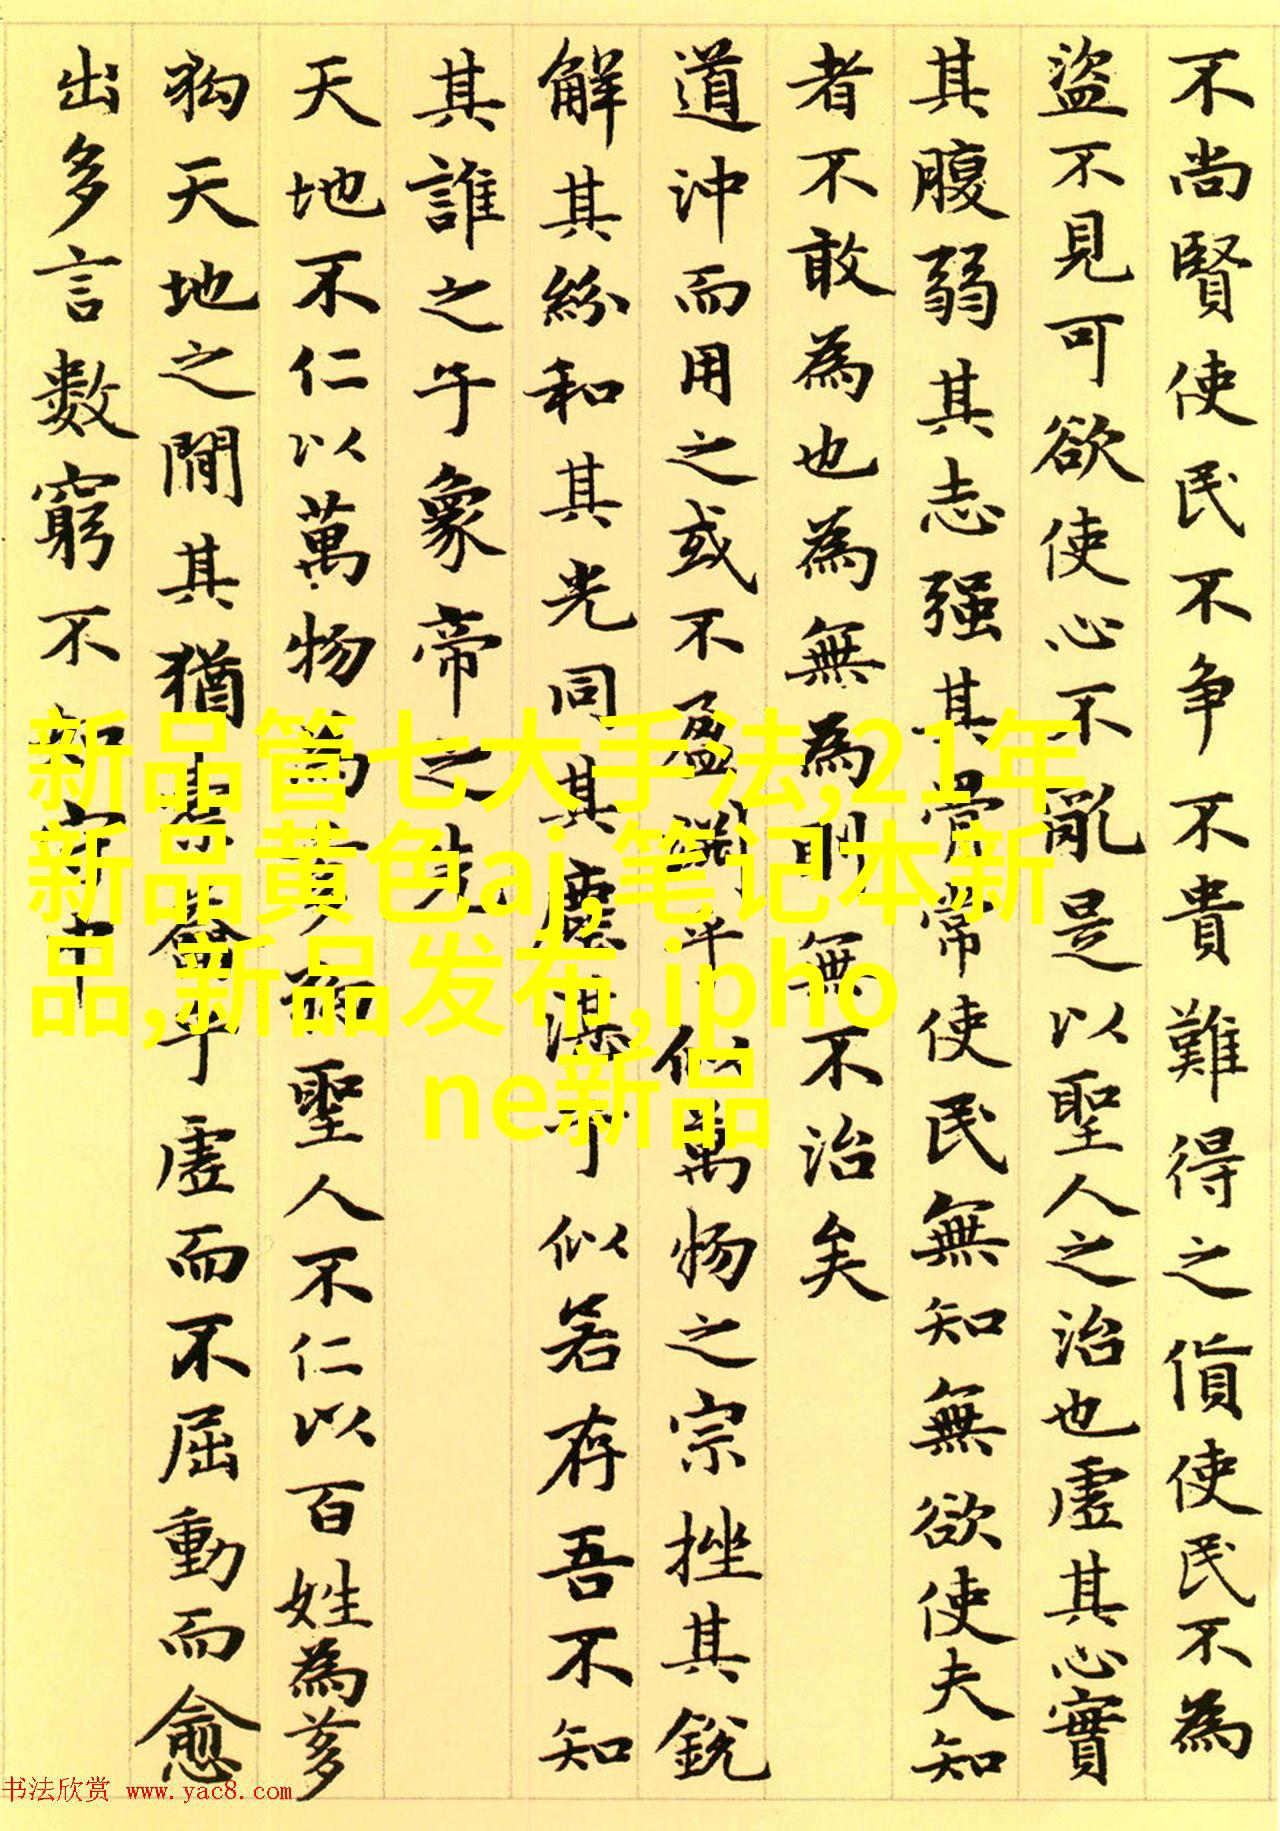 不尚賢使民不争不貴難得之貨使民不為
盜不見可欲使心不亂是以聖人之治也虛其心實
其腹弱其志强其骨常使民無知無欲使夫知
者不敢為也為無為則無不治矣
道沖而用之或不盈淵乎似萬物之宗挫其銳
解其紛和其光同其塵湛兮似若存吾不知
其誰之子象帝之先
天地不仁以萬物為芻狗聖人不仁以百姓為芻
狗天地之間其猶橐籥乎虛而不屈動而愈
出多言數窮不如守中
新品管七大手法,21年
新品黄色aj,笔记本新
品,新品发布,ipho
ne新品
书法欣赏 www.yac8.com